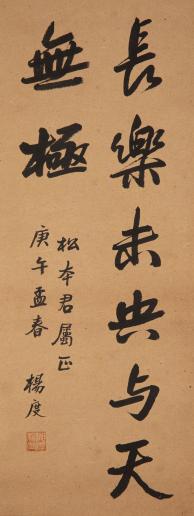 長樂未央与天
無極
松本君屬正
庚午孟春 楊度